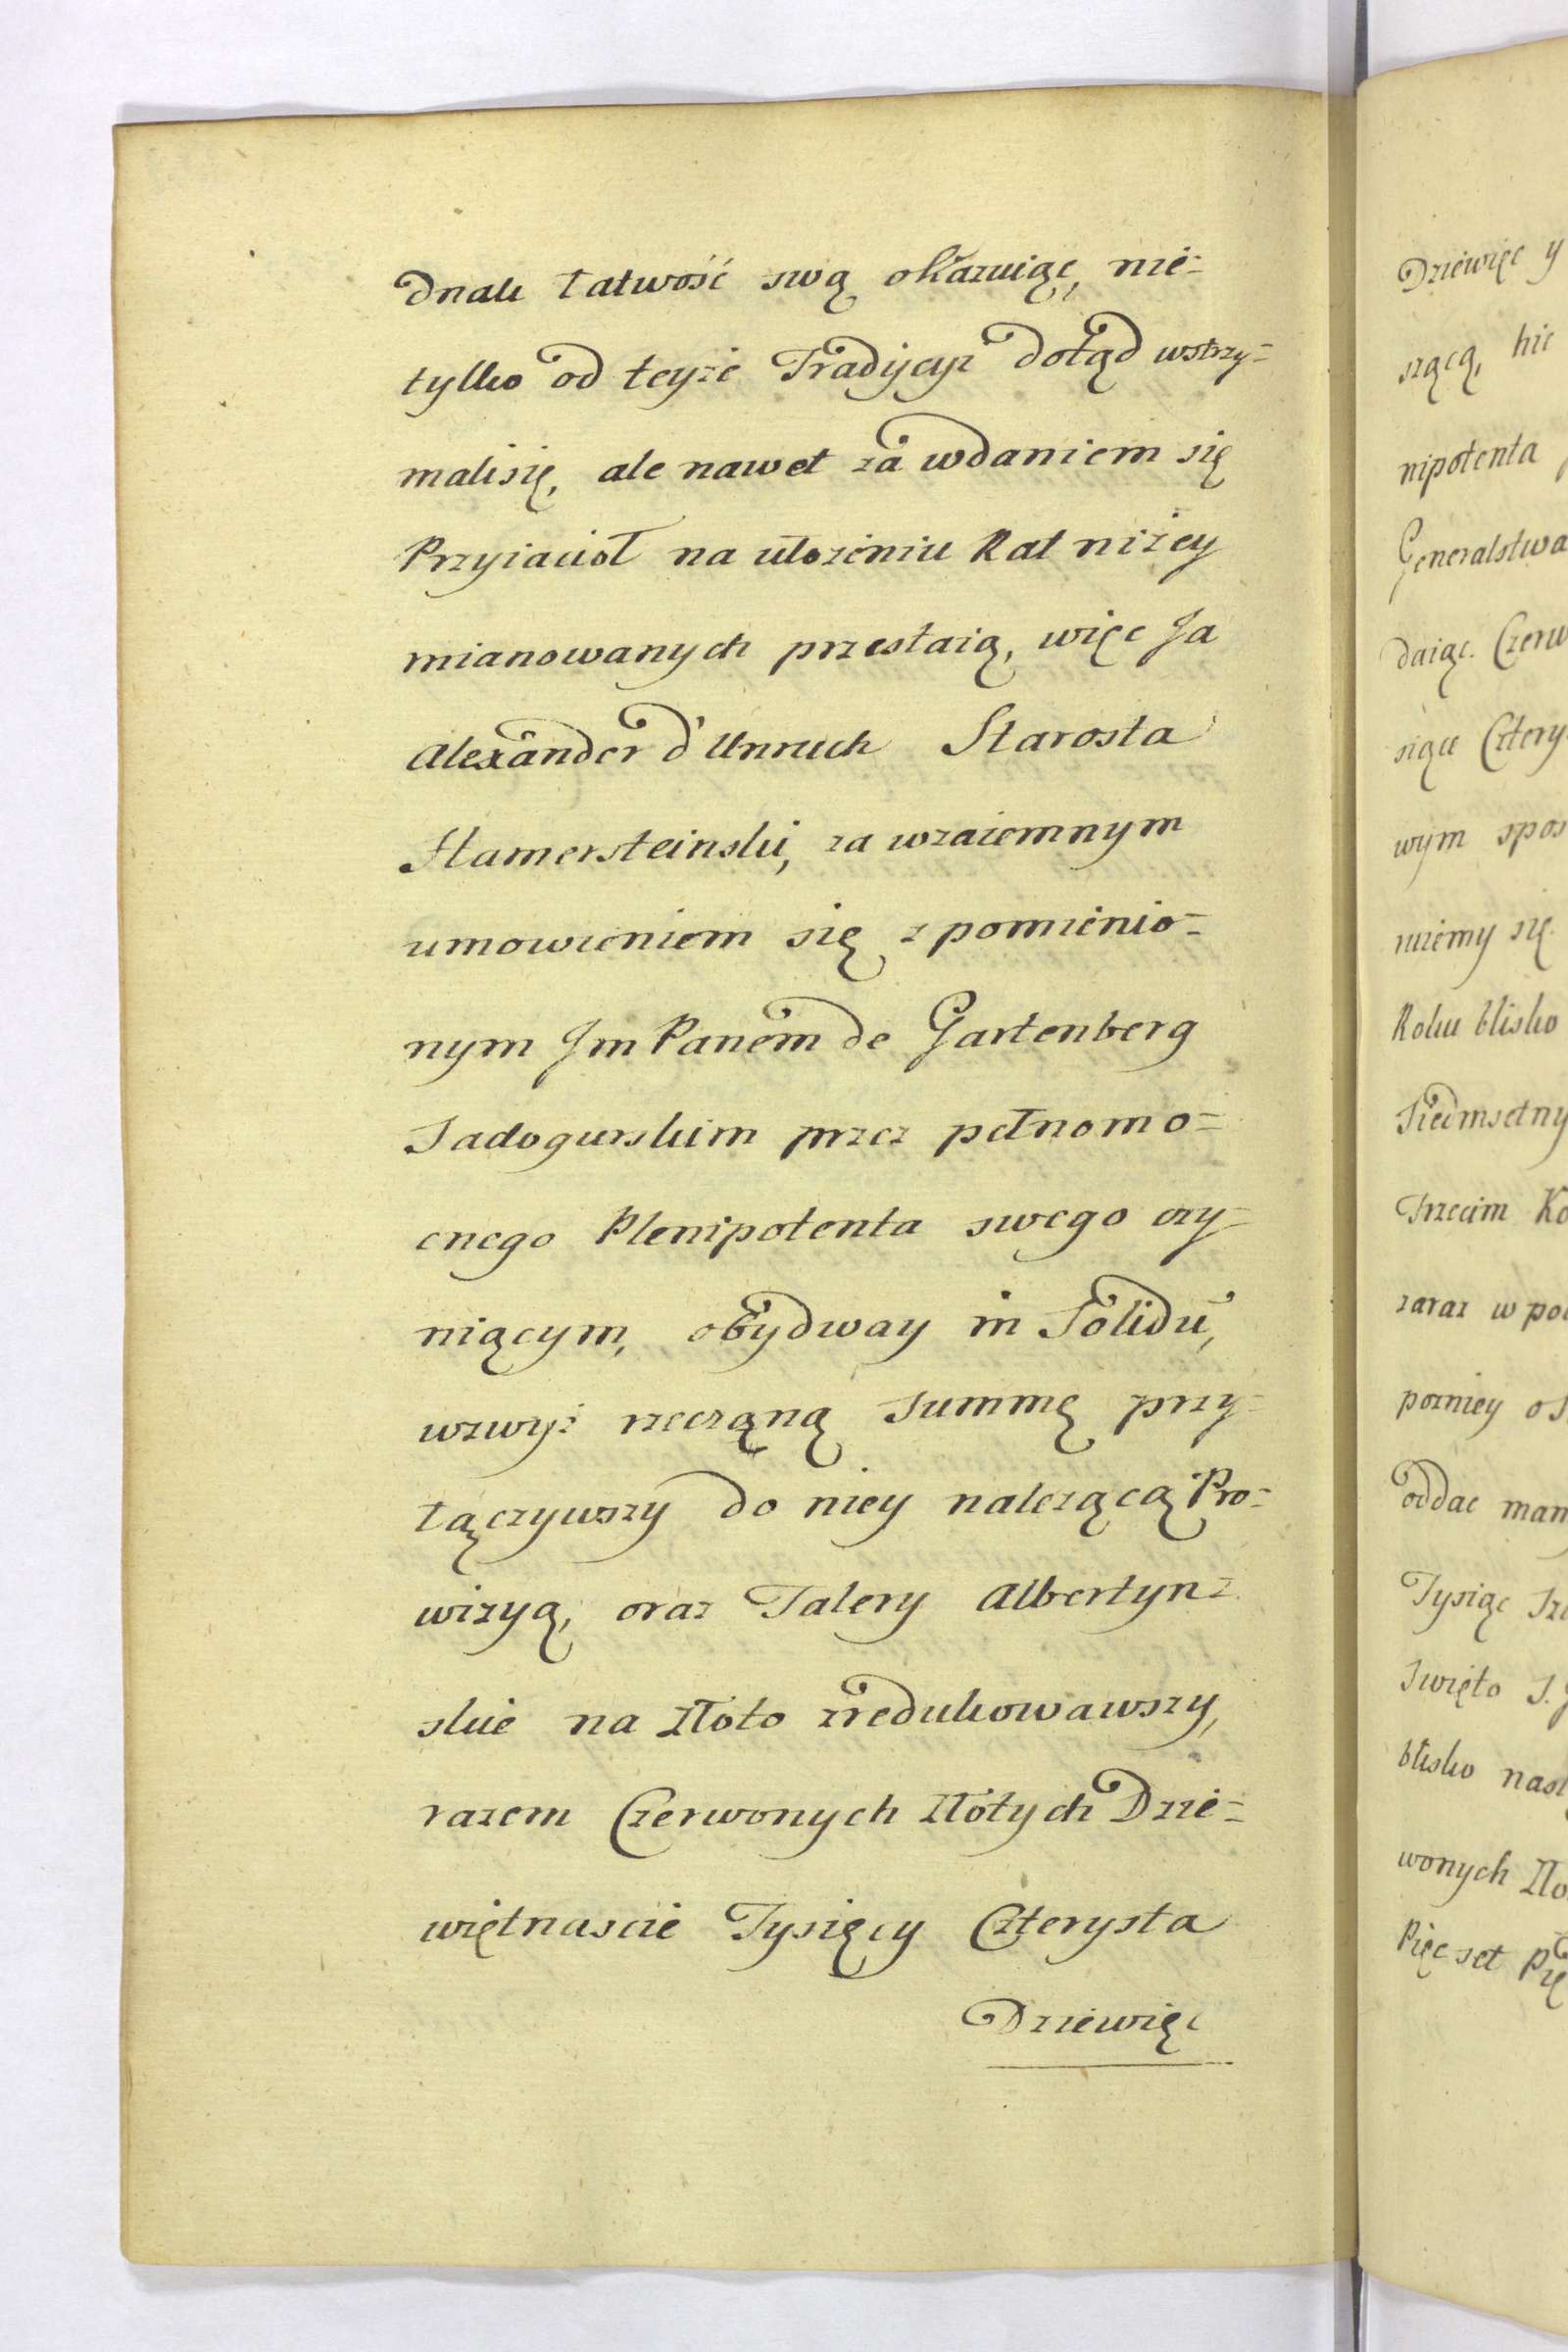 dnak łatwość swą okazuiąc, nie=
tylko od teyże Tradycyi dotąd wstrzy=
mali się, ale nawet za wdaniem się
Przyiacioł na ułożeniu Rat niżey
mianowanych przestaią, więc Ja
Alexander d'Unruch Starosta
Hamersteinski, za wzaiemnym
umowieniem się z pomienio=
nym Jm Panem de Gartenberg
Sadogurskim przez pełnomo=
cnego Plenipotenta swego czy=
niącym, obydway in Solidū,
wzwyż rzecząną Summę przy=
łączywszy do niey należącą Pro=
wizyą, oraz Talery Albertyn=
skie na Złoto zredukowawszy,
razem Czerwonych Złotych Dzie=
więtnascie Tysięcy Czterysta
Dziewięc
Dziewięc y
szącą, hic
nipotenta
Generalstwa
daiąc. Czerw
siące Cztery
wym spos
niiemy się.
Roku blisko
Siedmsetny
Trzecim Ko
zaraz w poł
pozniey o S
oddac mam
Tysiąc Trz
Swięto S. J
blisko nast
wonych Zło
Pięc set Pię